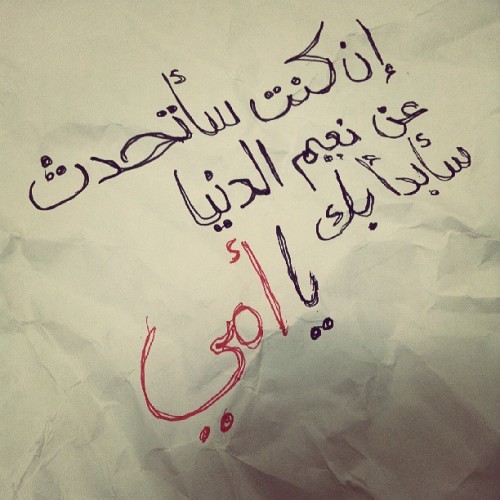 إن كنت سأتحدث
عن نعيم الدنيا
سأبدأ بك
يا أمي